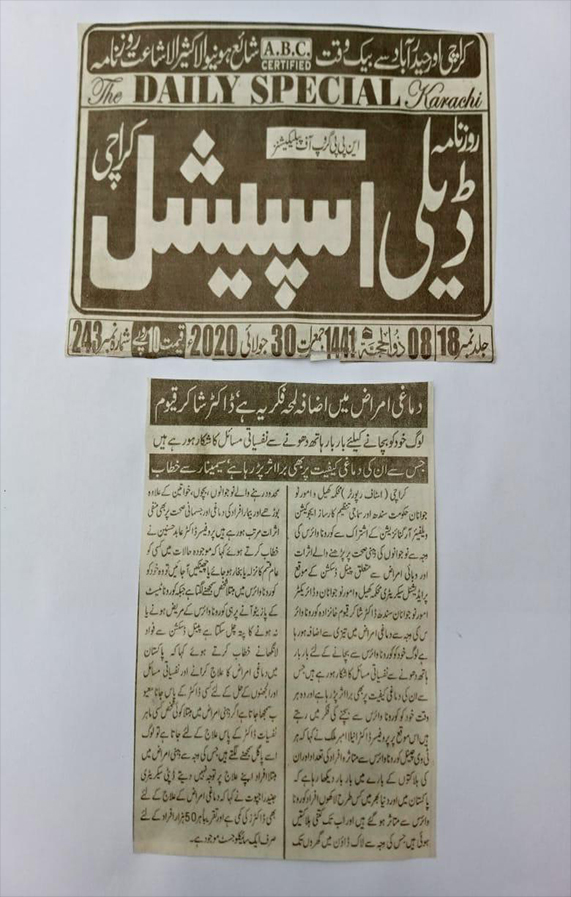 کراچی اور حیدرآباد سے بیک وقت A.B.C. CERTIFIED شائع ہونیوالا کثیر الاشاعت روزنامہ
The DAILY SPECIAL Karachi
روزنامہ
این پی پی گروپ آف پبلیکیشنز
ڈیلی اسپیشل کراچی
جلد نمبر 18 08 ذوالحجۃ 1441ھ جمعرات 30 جولائی 2020ء قیمت 10 روپے شمارہ نمبر 243
دماغی امراض میں اضافہ لمحہ فکریہ ہے، ڈاکٹر شاکر قیوم
لوگ خود کو بچانے کیلئے بار بار ہاتھ دھونے سے نفسیاتی مسائل کا شکار ہو رہے ہیں
جس سے ان کی دماغی کیفیت پر بھی برا اثر پڑ رہا ہے، سیمینار سے خطاب
کراچی (اسٹاف رپورٹر) محکمہ کھیل و امور نو
جوانان حکومت سندھ اور سماجی تنظیم کارساز ایجوکیشن
ویلفیئر آرگنائزیشن کے اشتراک سے کورونا وائرس کی
وجہ سے نوجوانوں کی ذہنی صحت پر پڑھنے والے اثرات
اور وبائی امراض سے متعلق پینل ڈسکشن کے موقع
پر ایڈیشنل سیکریٹری محکمہ کھیل و امور نوجوانان و ڈائریکٹر
امور نوجوانان سندھ ڈاکٹر شاکر قیوم خانزادہ کورونا وائر
س کی وجہ سے دماغی امراض میں تیزی سے اضافہ ہو رہا
ہے لوگ خود کو کورونا وائرس سے بچانے کے لئے بار بار
ہاتھ دھونے سے نفسیاتی مسائل کا شکار ہو رہے ہیں جس
سے ان کی دماغی کیفیت پر بھی برا اثر پڑ رہا ہے اور وہ ہر
وقت خود کو کورونا وائرس سے بچنے کی فکر میں رہتے
ہیں اس موقع پر پروفیسر ڈاکٹر انیلا امبر ملک نے کہا کہ ہر
ٹی وی چینل کورونا وائرس سے متاثرہ افراد کی تعداد اور ان
کی ہلاکتوں کے بارے میں بار بار دیکھا رہا ہے کہ
پاکستان میں اور دنیا بھر میں کس طرح لاکھوں افراد کورونا
وائرس سے متاثر ہو گئے ہیں اور اب تک کتنی ہلاکتیں
ہوئی ہیں جس کی وجہ سے لاک ڈاؤن میں گھروں تک
محدود رہنے والے نوجوانوں، بچوں، خواتین کے علاوہ
بوڑھے اور بیمار افراد کی دماغی اور جسمانی صحت پر بھی منفی
اثرات مرتب ہو رہے ہیں پروفیسر ڈاکٹر عابد حسین نے
خطاب کرتے ہوئے کہا کہ موجودہ حالات میں کسی کو
عام قسم کا نزلہ یا بخار ہو جائے یا چھینکیں آ جائیں تو وہ خود کو
کورونا وائرس میں مبتلا شخص سمجھنے لگتا ہے جبکہ کورونا ٹیسٹ
کے پازیٹو آنے پر ہی کورونا وائرس کے مریض ہونے یا
نہ ہونے کا پتہ چل سکتا ہے پینل ڈسکشن سے فواد
خطاب کرتے ہوئے کہا کہ پاکستان
میں دماغی امراض کا علاج کرانے اور نفسیاتی مسائل
اور الجھنوں کے حل کے لئے کسی ڈاکٹر کے پاس جانا معیو
ب سمجھا جاتا ہے اگر ذہنی امراض میں مبتلا کوئی شخص کسی ماہر
نفسیات ڈاکٹر کے پاس علاج کے لئے جاتا ہے تو لوگ
اسے پاگل سمجھنے لگتے ہیں جس کی وجہ سے ذہنی امراض میں
مبتلا افراد اپنے علاج پر توجہ نہیں دیتے ڈپٹی سیکریٹری
جنید راجپوت نے کہا کہ دماغی امراض کے علاج کے لئے
بھی ڈاکٹرز کی کمی ہے اور تقریباً ہر 50 ہزار افراد کے لئے
صرف ایک سائیکلوجسٹ موجود ہے۔